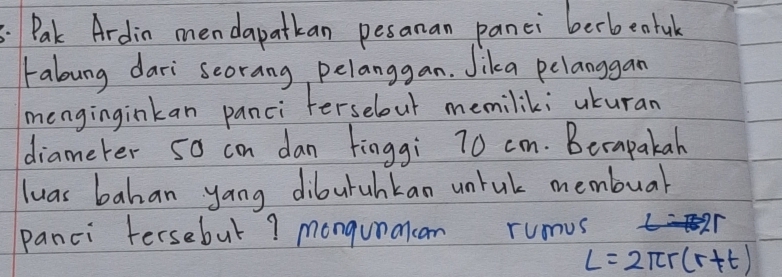 3. Pak Ardin mendapatkan pesanan panci berbentuk
tabung dari seorang pelanggan. Jika pelanggan
menginginkan panci tersebut memiliki ukuran
diameter 50 cm dan tinggi 70 cm. Berapakah
luas bahan yang dibutuhkan untuk membuat
panci tersebut? mengunakan rumus
L = 2πr(r+t)